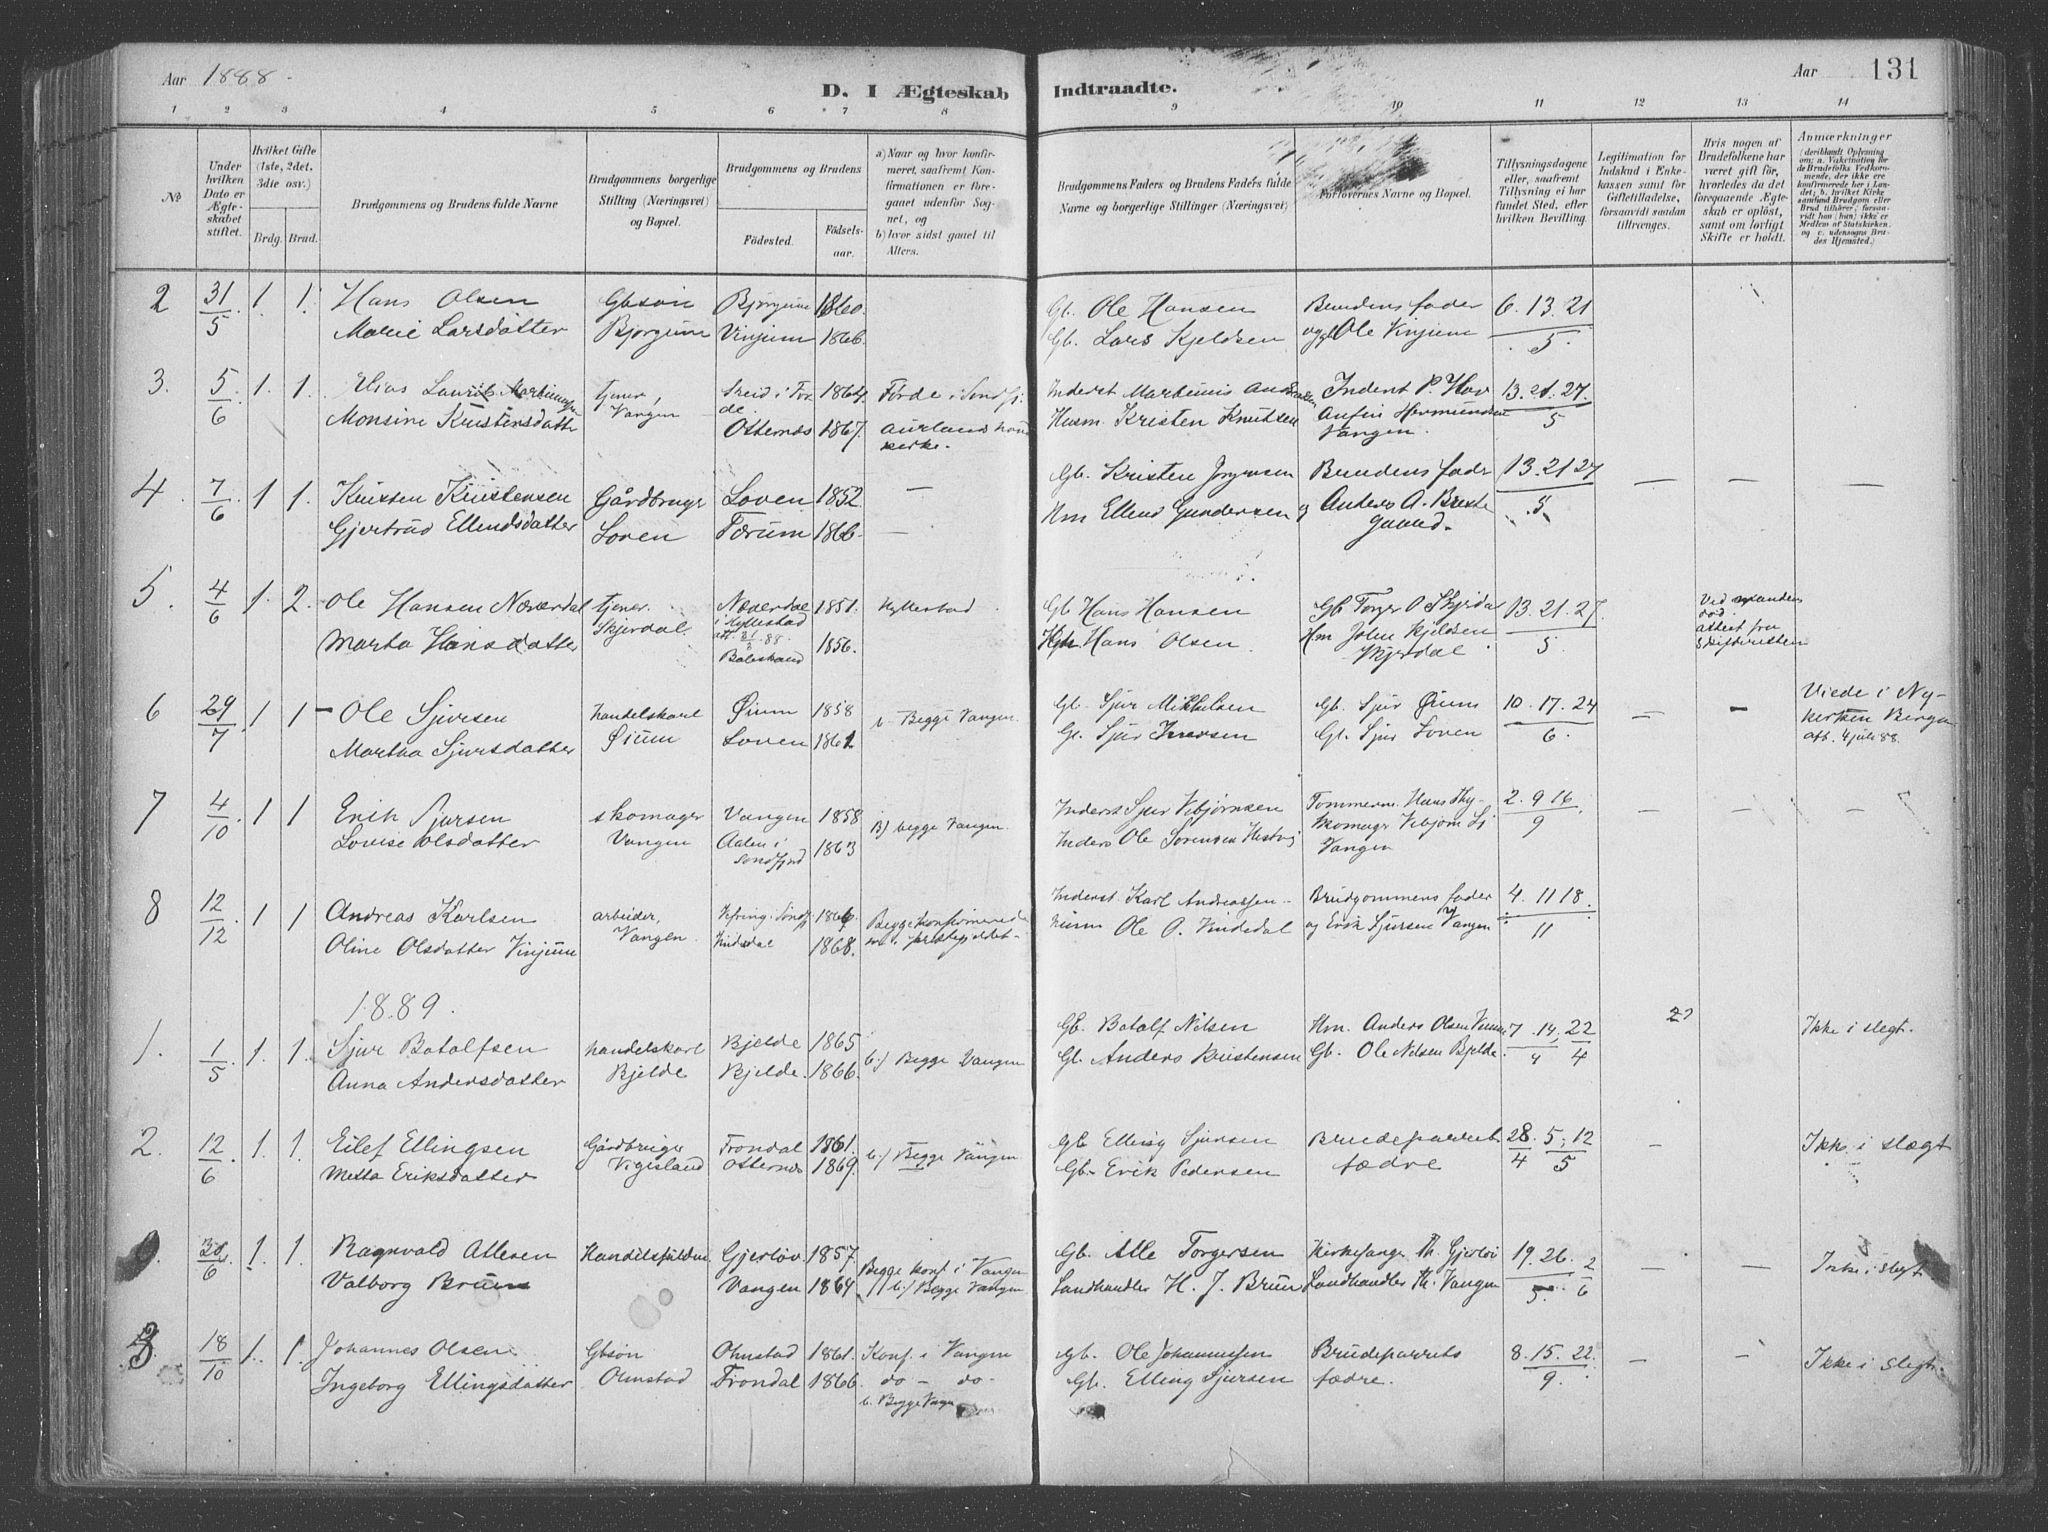 Aar 1888.
D. I Ægteskab Indtraadte.
Aar 131
1 2 3 4 5 6 7 8 9 10 11 12 13 14
№
Under hvilken Dato er Ægteskabet stiftet.
Hvilket Gifte (1ste, 2det, 3die osv.)
Brdg. Brud.
Brudgommens og Brudens fulde Navne
Brudgommens borgerlige Stilling (Næringsvei) og Bopæl.
Brudgommens og Brudens
Fødested. Fødselsaar.
a) Naar og hvor konfirmeret, saafremt Konfirmationen er foregaaet udenfor Sognet, og b) hvor sidst gaaet til Alters.
Brudgommens Faders og Brudens Faders fulde Navne og borgerlige Stillinger (Næringsvei)
Forlovernes Navne og Bopæl.
Tillysningsdagene eller, saafremt Tillysning ei har fundet Sted, efter hvilken Bevilling.
Legitimation for Indskud i Enkekassen samt for Giftetilladelse, forsaavidt saadan tiltrænges.
Hvis nogen af Brudefolkene har været gift før, hvorledes da det foregaaende Ægteskab er opløst, samt om lovligt Skifte er holdt.
Anmærkninger
2 31/5 1. 1. Hans Olsen Gbsøn Bjørgum 1860. Gb. Ole Hansen Brudens fader 6. 13. 21
Marie Larsdatter Bjørgum Vinjum 1866. Gb. Lars Kjeldsen og Ole Vinjum 5.
3. 5/6 1. 1. Elias Martinussen tjener, 1864. Førde i Inderst Martinus Indent P. Hov 13. 21. 27.
Monsine Kristensdatter Vangen Otternes 1867. Aurlands kirke. Husm. Kristen Knutsen Anfin Hermundsen 5
Vangen.
4. 7/6 1 1. Kristen Kristensen Gårdbruger Loven 1852 — Gb. Kristen Brudens fader 13. 21 27 — —
Gjertrud Ellendsdatter Loven Tærum 1866. — Hm Ellend Gundersen og Anders A. 5.
5. 4/6 1. 2. Ole Hansen Næverdal tjener. Næverdal 1851. Hyllestad Gb Hans Hansen Gb Torger O Skjerdal 13. 21. 27. Ved
Marta Hansdatter Skjerdal i Hyllestad 1856. Hans Olsen Hm John Kjeldsen 5. attest fra
Balestrand Skjerdal skifteretten
6 29/7 1 1 Ole Sjursen handelskarl Øium 1858 b. Begge Vangen. Gb. Sjur Mikkelsen Gb. Sjur Øium 10. 17. 24 — — Viede i Ny-
Martha Sjursdatter Øium Loven 1861 Gb. Sjur Gb. Sjur Loven 6. kirken Bergen
4 juli 88.
7 4/10 1 1 Erik Sjursen skomager Vangen 1858 B) begge Vangen. Inderst Sjur Vibjørnsen Tømmerm. Hans 2. 9 16 — — —
Lovise Olsdatter Vangen Aalen i 1863 Inders Ole Sørensen Skomager Vibjørn Sj 9
Søndfjord Vangen
8 12/12 1 1 Andreas Karlsen arbeider, 1864 Begge konfirmerede Inderst Karl Andreassen Brudgommens fader 4. 11 18.
Oline Olsdatter Vinjum Vangen. 1868. Ole O. og Erik Sjursen Vangen 11
1889.
1. 1/5 1. 1. Sjur Botolfsen handelskarl Bjelde 1865 b.) Begge Vangen Gb. Botolf Nilsen Hm. Anders Olsen 7. 14, 22 Ikke i slegt.
Anna Andersdatter Bjelde Bjelde. 1866. Gb. Anders Kristensen Gb. Ole Nilsen Bjelde. 4 4
2. 12/6 1. 1. Eilef Ellingsen Gårdbruger Frondal 1861. b.) Begge Vangen Gb Elling Sjursen Brudeparrets 28. 5. 12 — Ikke i slægt
Metta Eriksdatter Vigesland Otternes 1869. Gb. Erik Pedersen fædre 4 5
1. 1. Ragnvald Atlesen Gjerløv 1857. Begge konf i Vangen Gb. Atle Torgersen Kirkesanger Th. Gjerløv 19. 26. 2 — — Ikke i slegt.
Valborg Brun Vangen 1864 b.) Begge Vangen. Landhandler H. J. Brun Landhandler Th. Vangen 5. 6
3 18/10 1. 1. Johannes Olsen Gbsøn Ohnstad 1861. Konf. i Vangen Gb. Ole Johannessen Brudeparrets 8. 15. 22. — — Ikke i slegt.
Ingeborg Ellingsdatter Ohnstad Frondal 1866. do — do. Gb. Elling Sjursen fædre. 9.
b. Begge Vangen